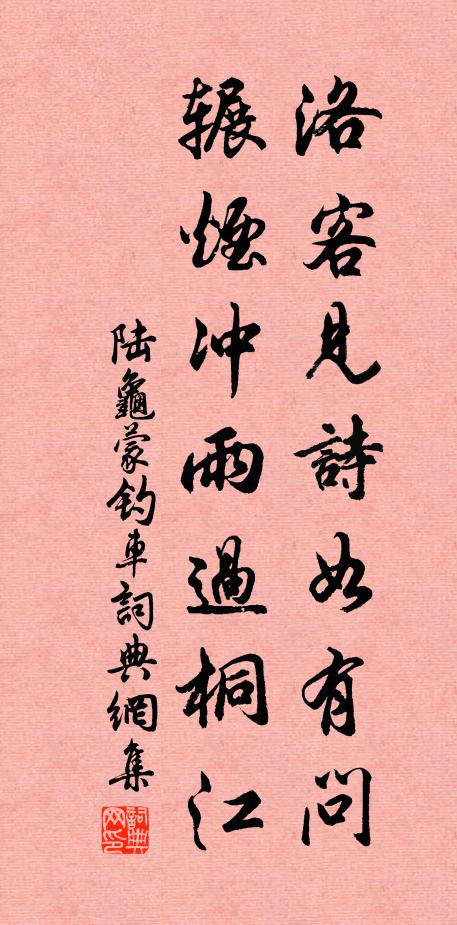 洛客見詩如有問
輾煙沖雨過桐江
陸龜蒙釣車詞典網集
詞典网印